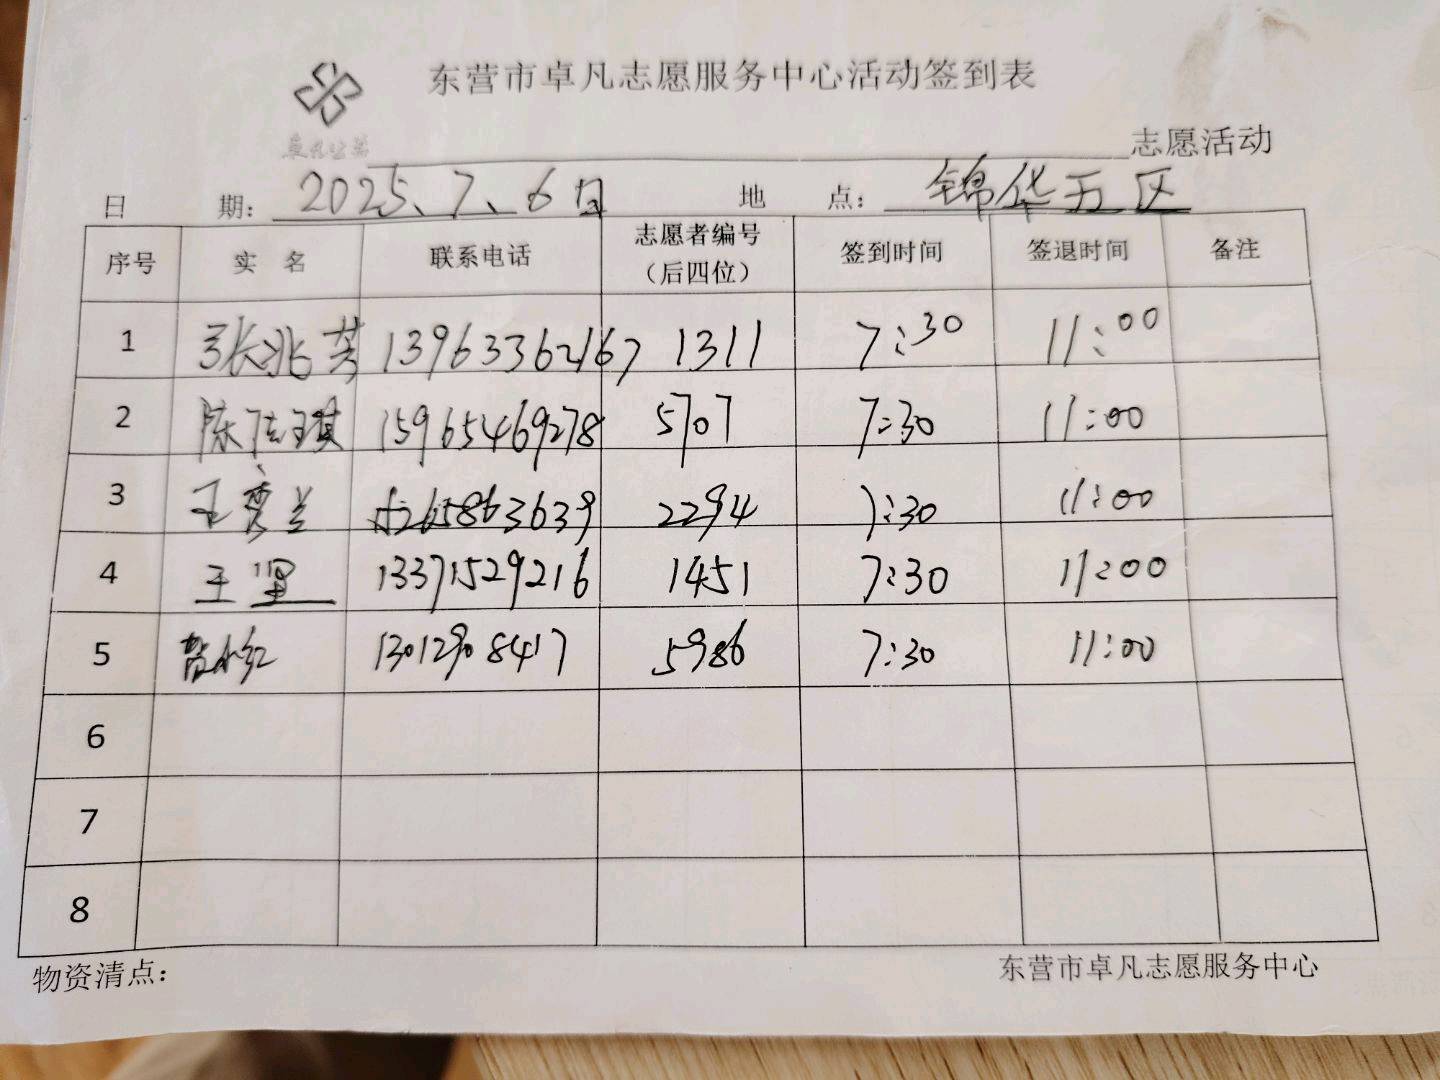 东营市卓凡志愿服务中心活动签到表
卓凡公益
志愿活动
日 期：2025、7、6日 地 点：锦华五区
序号 实 名 联系电话 志愿者编号（后四位） 签到时间 签退时间 备注
1 张兆芳 13963362167 1311 7:30 11:00
2 陈 琪 15965469278 5707 7:30 11:00
3 王秀兰 15265863639 2294 7:30 11:00
4 王坚 13371529216 1451 7:30 11:00
5 红 13012908417 5986 7:30 11:00
6
7
8
物资清点： 东营市卓凡志愿服务中心